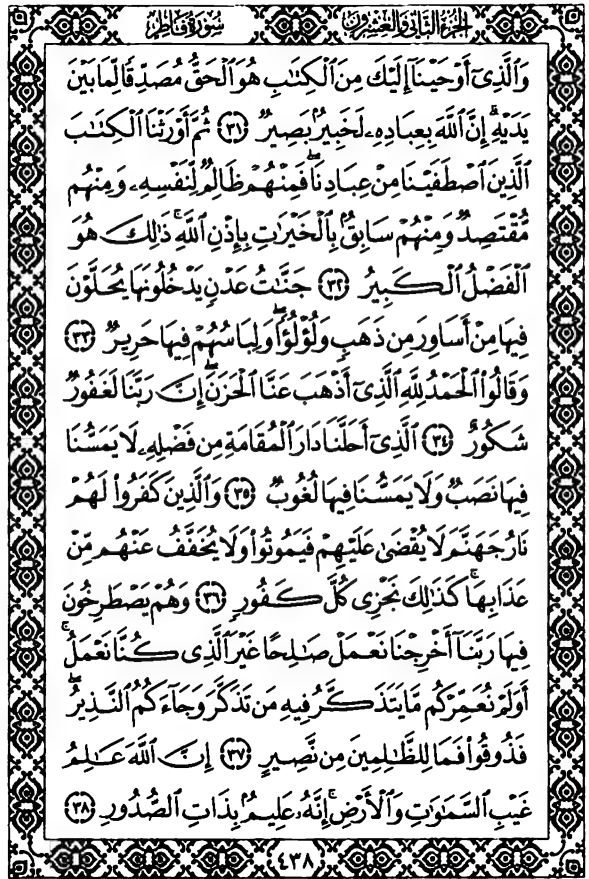 الجزء الثاني والعشرون
سورة فاطر
وَالَّذِىٓ أَوْحَيْنَآ إِلَيْكَ مِنَ الْكِتَٰبِ هُوَ الْحَقُّ مُصَدِّقًا لِّمَا بَيْنَ
يَدَيْهِ ۗ إِنَّ اللَّهَ بِعِبَادِهِۦ لَخَبِيرٌۢ بَصِيرٌ ﴿٣١﴾ ثُمَّ أَوْرَثْنَا الْكِتَٰبَ
الَّذِينَ اصْطَفَيْنَا مِنْ عِبَادِنَا ۖ فَمِنْهُمْ ظَالِمٌ لِّنَفْسِهِۦ وَمِنْهُم
مُّقْتَصِدٌ وَمِنْهُمْ سَابِقٌۢ بِالْخَيْرَٰتِ بِإِذْنِ اللَّهِ ۚ ذَٰلِكَ هُوَ
الْفَضْلُ الْكَبِيرُ ﴿٣٢﴾ جَنَّٰتُ عَدْنٍ يَدْخُلُونَهَا يُحَلَّوْنَ
فِيهَا مِنْ أَسَاوِرَ مِن ذَهَبٍ وَلُؤْلُؤًا ۖ وَلِبَاسُهُمْ فِيهَا حَرِيرٌ ﴿٣٣﴾
وَقَالُوا۟ الْحَمْدُ لِلَّهِ الَّذِىٓ أَذْهَبَ عَنَّا الْحَزَنَ ۖ إِنَّ رَبَّنَا لَغَفُورٌ
شَكُورٌ ﴿٣٤﴾ الَّذِىٓ أَحَلَّنَا دَارَ الْمُقَامَةِ مِن فَضْلِهِۦ لَا يَمَسُّنَا
فِيهَا نَصَبٌ وَلَا يَمَسُّنَا فِيهَا لُغُوبٌ ﴿٣٥﴾ وَالَّذِينَ كَفَرُوا۟ لَهُمْ
نَارُ جَهَنَّمَ لَا يُقْضَىٰ عَلَيْهِمْ فَيَمُوتُوا۟ وَلَا يُخَفَّفُ عَنْهُم مِّنْ
عَذَابِهَا ۚ كَذَٰلِكَ نَجْزِى كُلَّ كَفُورٍ ﴿٣٦﴾ وَهُمْ يَصْطَرِخُونَ
فِيهَا رَبَّنَآ أَخْرِجْنَا نَعْمَلْ صَٰلِحًا غَيْرَ الَّذِى كُنَّا نَعْمَلُ ۚ
أَوَلَمْ نُعَمِّرْكُم مَّا يَتَذَكَّرُ فِيهِ مَن تَذَكَّرَ وَجَآءَكُمُ النَّذِيرُ ۖ
فَذُوقُوا۟ فَمَا لِلظَّٰلِمِينَ مِن نَّصِيرٍ ﴿٣٧﴾ إِنَّ اللَّهَ عَٰلِمُ
غَيْبِ السَّمَٰوَٰتِ وَالْأَرْضِ ۚ إِنَّهُۥ عَلِيمٌۢ بِذَاتِ الصُّدُورِ ﴿٣٨﴾
٤٣٨